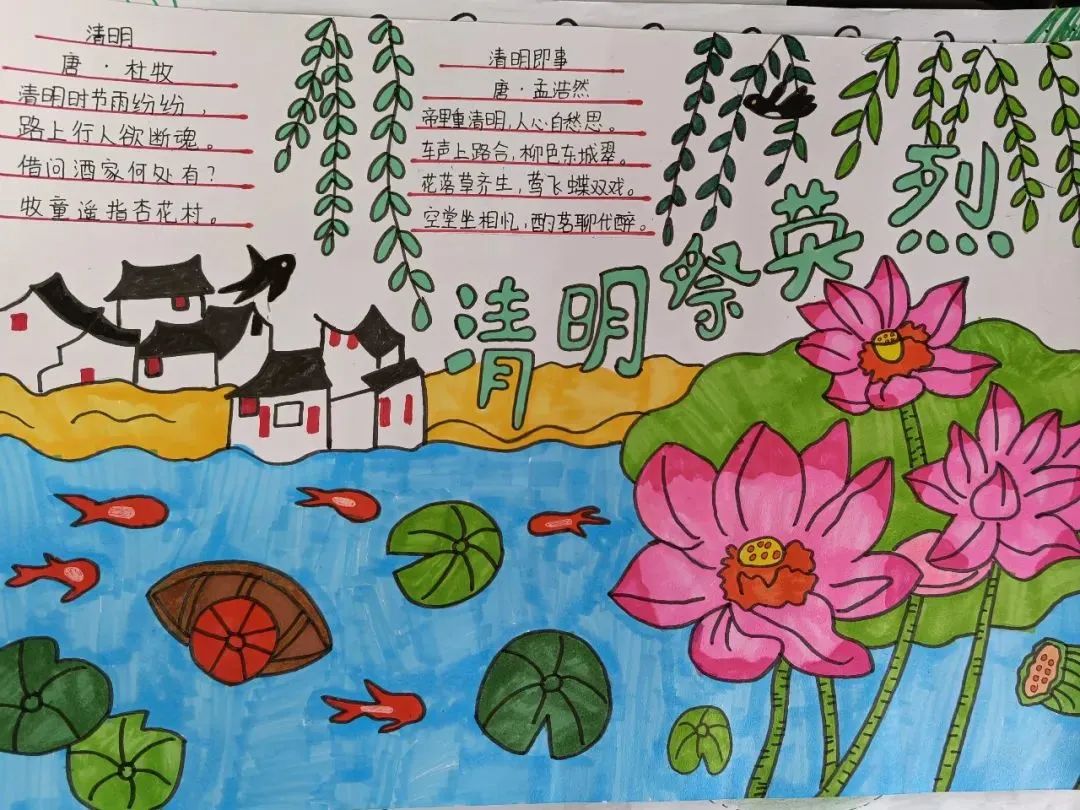 清明
唐·杜牧
清明时节雨纷纷，
路上行人欲断魂。
借问酒家何处有？
牧童遥指杏花村。
清明即事
唐·孟浩然
帝里重清明，人心自愁思。
车声上路合，柳色东城翠。
花落草齐生，莺飞蝶双戏。
空堂坐相忆，酌茗聊代醉。
清明祭英烈